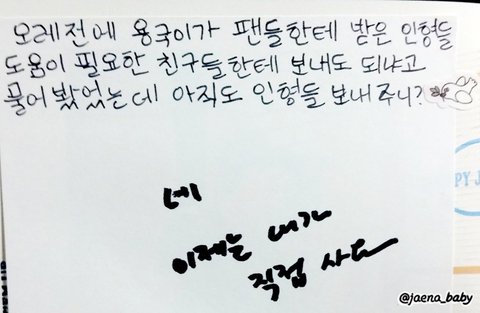 오래전에 용국이가 팬들한테 받은 인형들
도움이 필요한 친구들한테 보내도 되냐고
물어 봤었는데 아직도 인형들 보내 주니?
네
이제는 내가
직접 사요
PY J
@jaena_baby